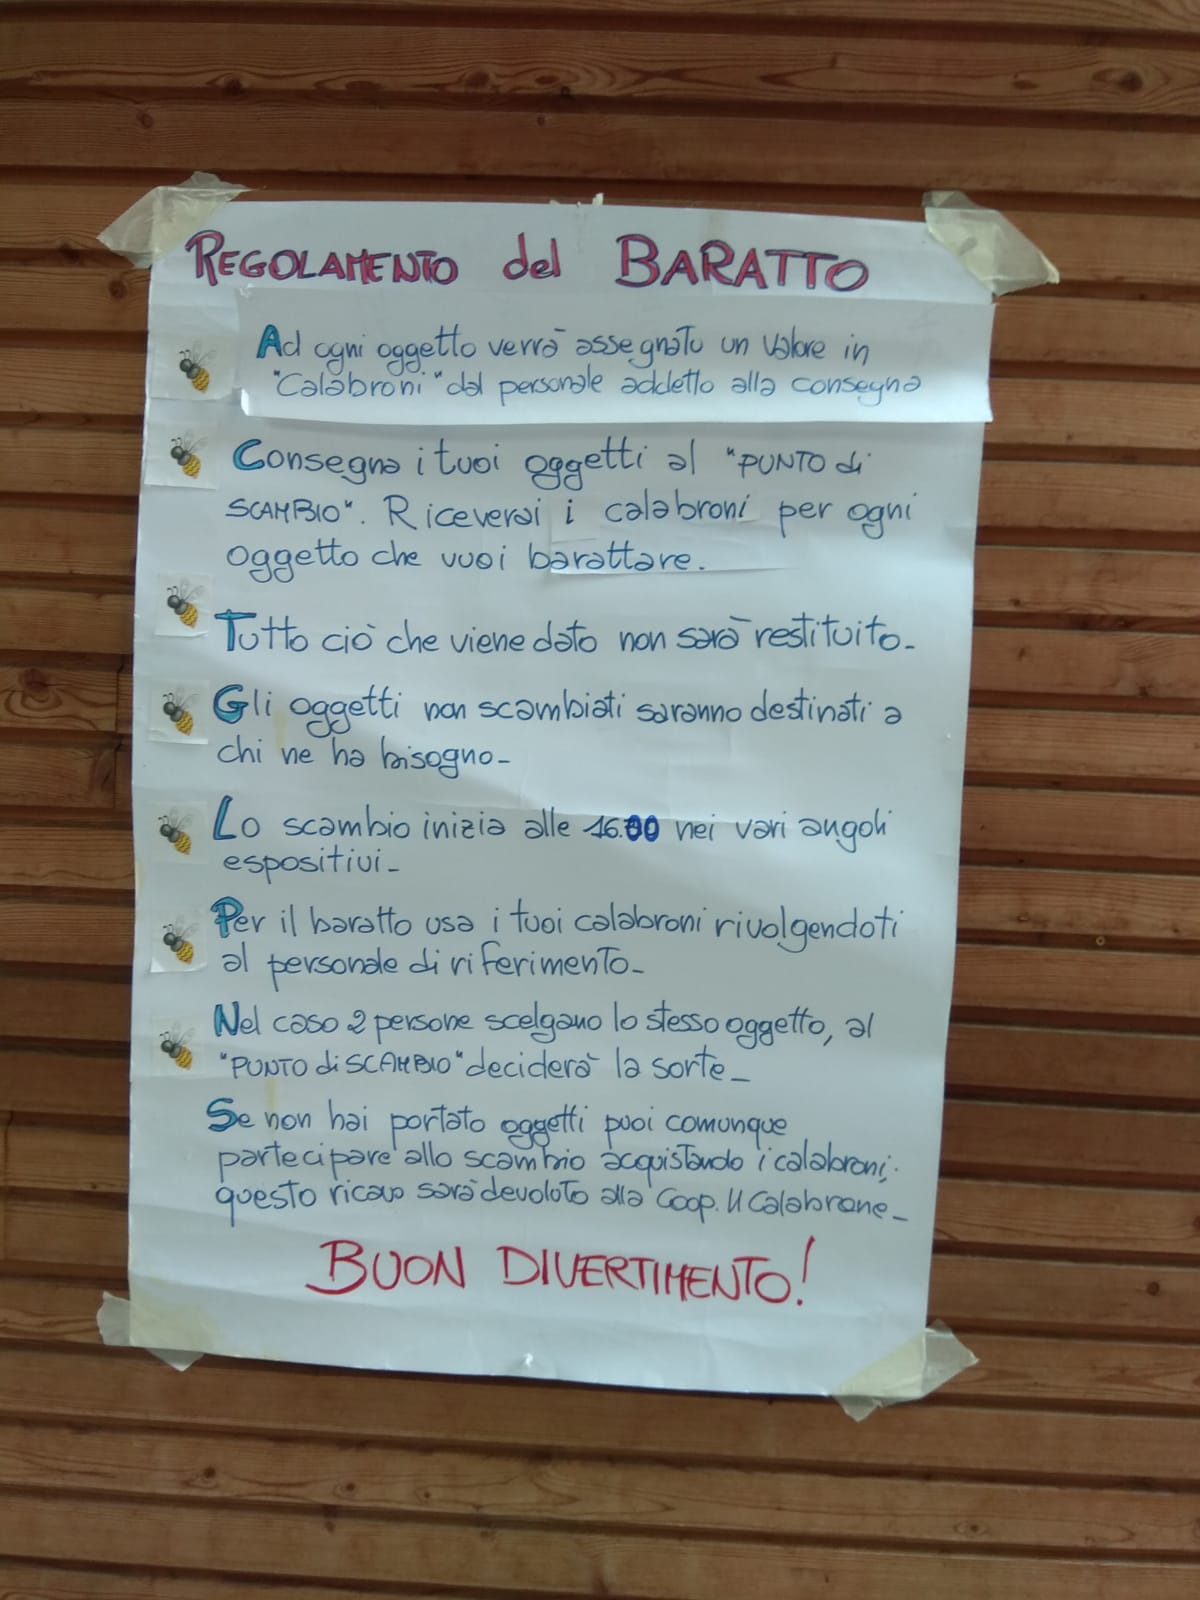 REGOLAMENTO del BARATTO
Ad ogni oggetto verrà assegnato un valore in
"Calabroni" dal personale addetto alla consegna
Consegna i tuoi oggetti al "PUNTO di
SCAMBIO". Riceverai i calabroni per ogni
oggetto che vuoi barattare.
Tutto ciò che viene dato non sarà restituito_
Gli oggetti non scambiati saranno destinati a
chi ne ha bisogno_
Lo scambio inizia alle 16.00 nei vari angoli
espositivi_
Per il baratto usa i tuoi calabroni rivolgendoti
al personale di riferimento_
Nel caso 2 persone scelgano lo stesso oggetto, al
"PUNTO di SCAMBIO" deciderà la sorte_
Se non hai portato oggetti puoi comunque
partecipare allo scambio acquistando i calabroni;
questo ricavo sarà devoluto alla Coop. Il Calabrone_
BUON DIVERTIMENTO!